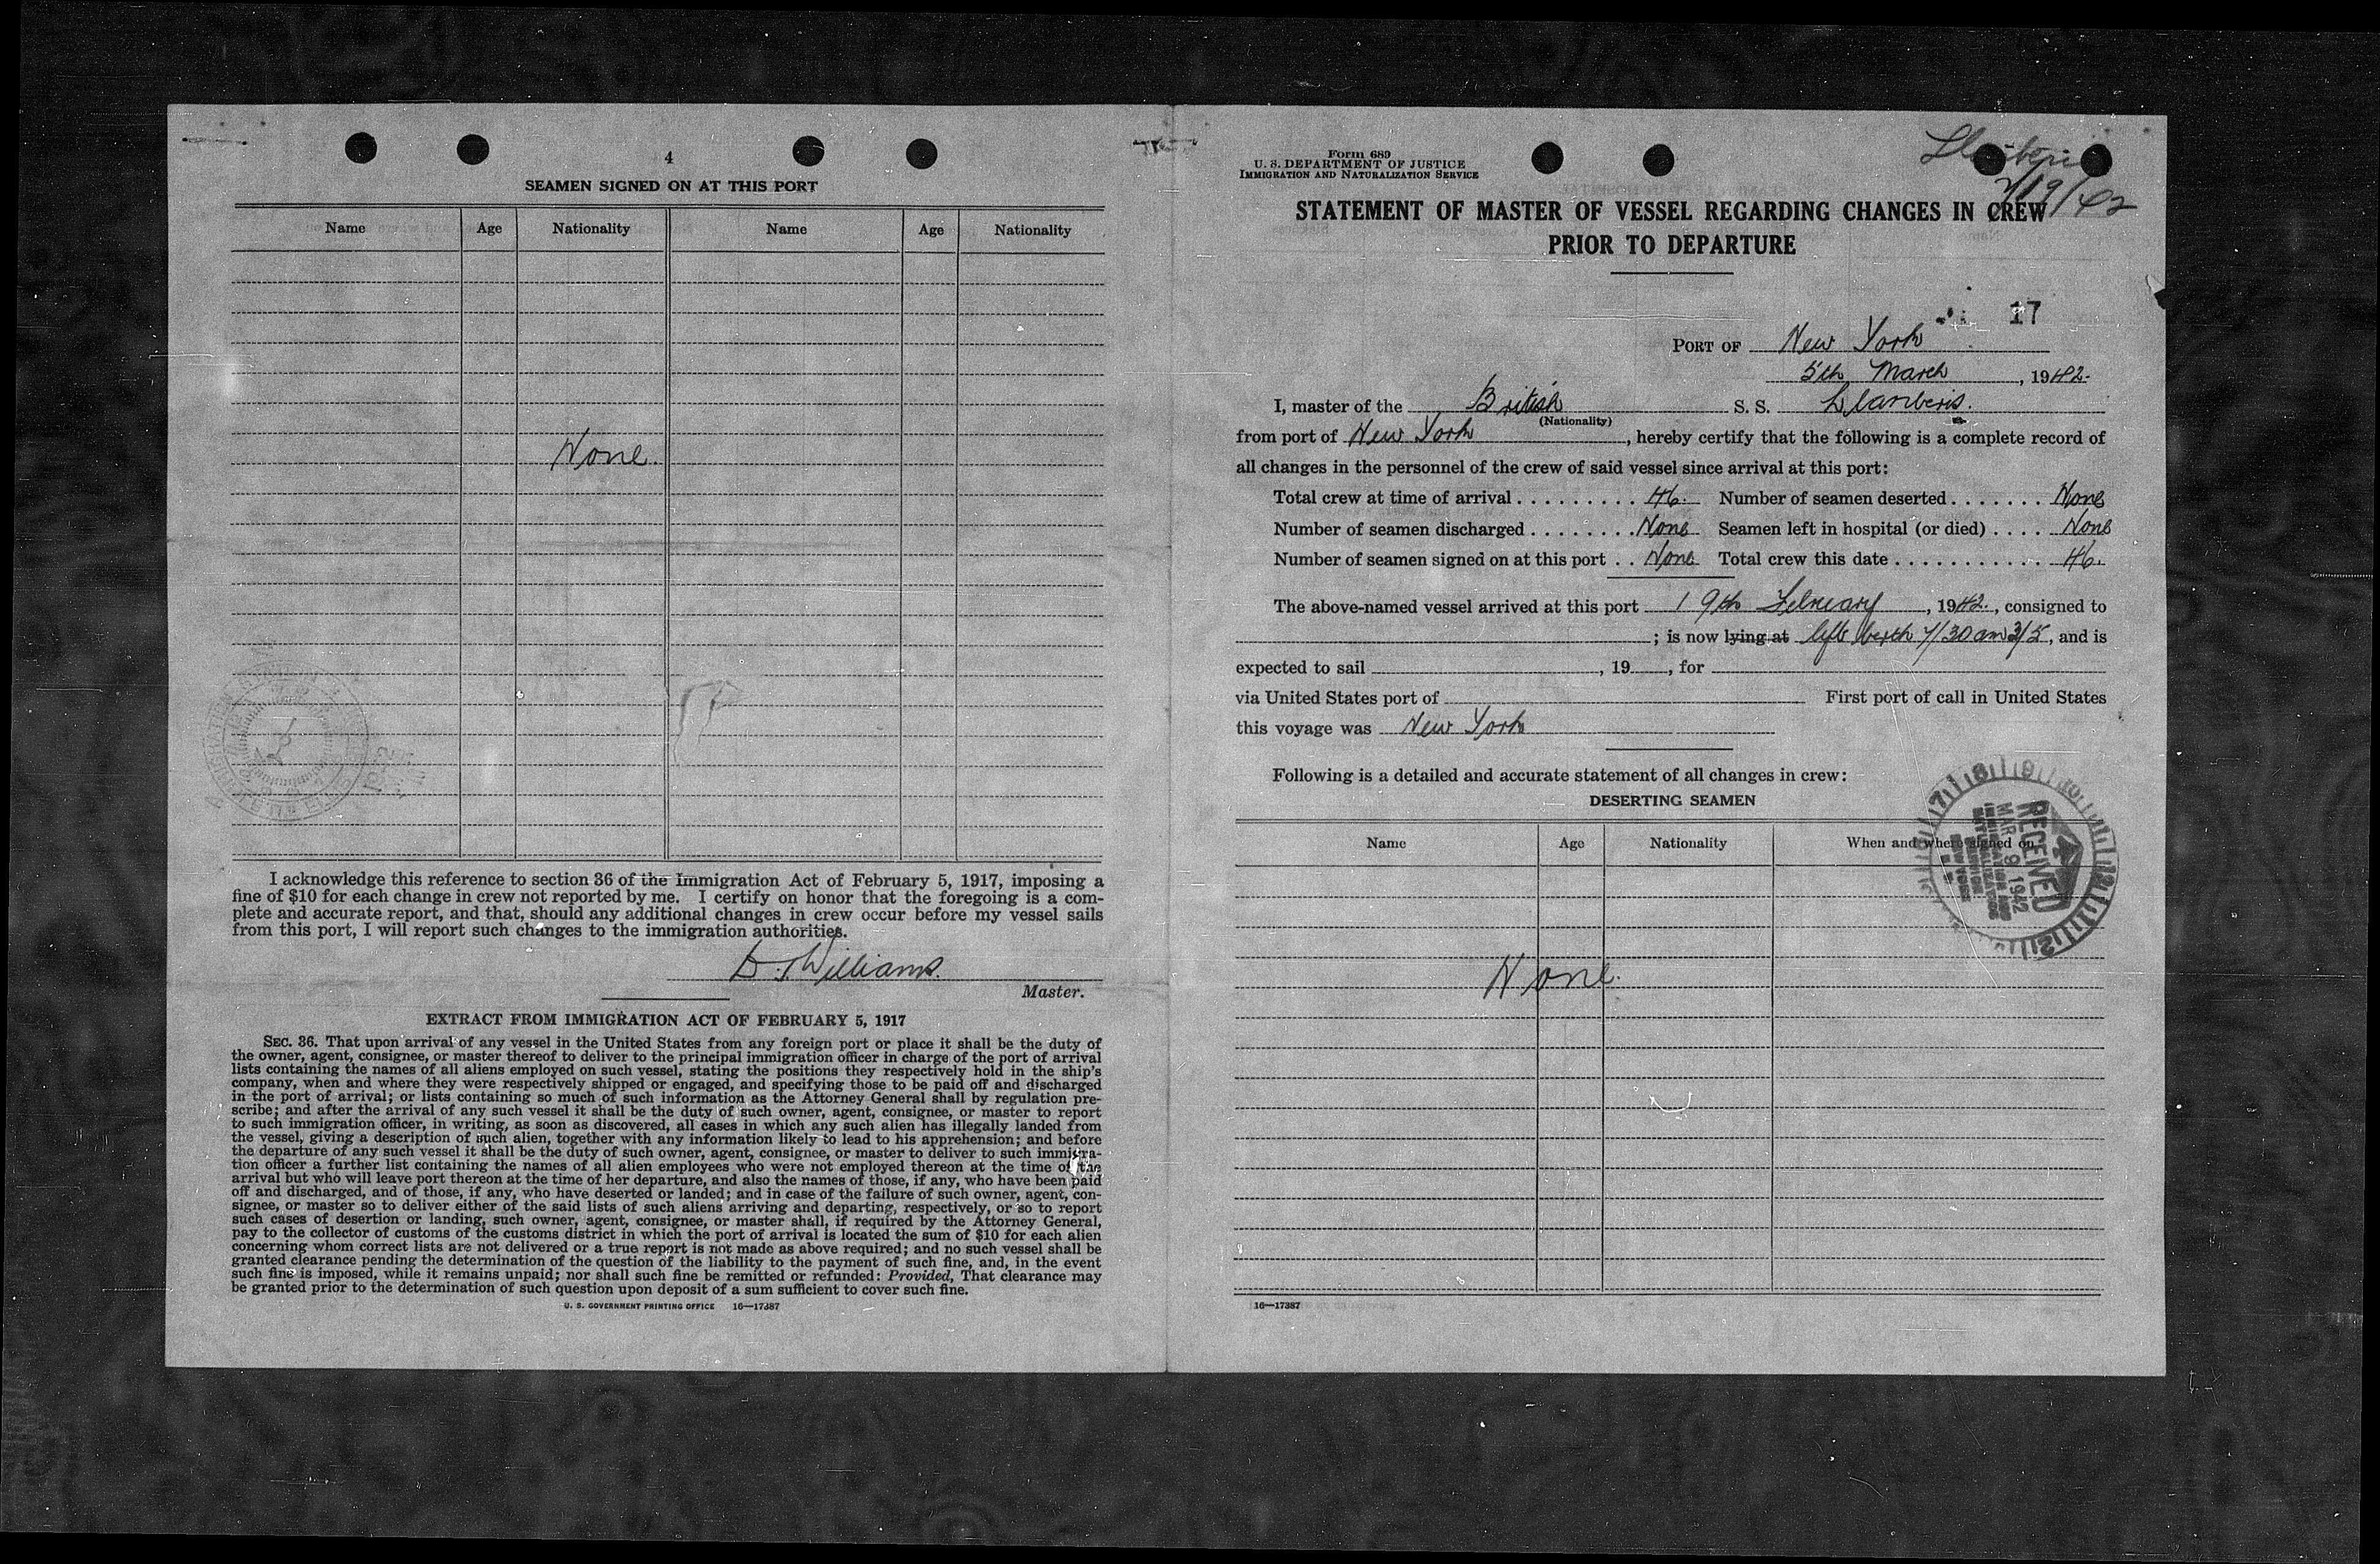 4
SEAMEN SIGNED ON AT THIS PORT
Name Age Nationality Name Age Nationality
None.
I acknowledge this reference to section 36 of the Immigration Act of February 5, 1917, imposing a
fine of $10 for each change in crew not reported by me. I certify on honor that the foregoing is a com-
plete and accurate report, and that, should any additional changes in crew occur before my vessel sails
from this port, I will report such changes to the immigration authorities.
D. J. Williams.
Master.
EXTRACT FROM IMMIGRATION ACT OF FEBRUARY 5, 1917
SEC. 36. That upon arrival of any vessel in the United States from any foreign port or place it shall be the duty of
the owner, agent, consignee, or master thereof to deliver to the principal immigration officer in charge of the port of arrival
lists containing the names of all aliens employed on such vessel, stating the positions they respectively hold in the ship's
company, when and where they were respectively shipped or engaged, and specifying those to be paid off and discharged
in the port of arrival; or lists containing so much of such information as the Attorney General shall by regulation pre-
scribe; and after the arrival of any such vessel it shall be the duty of such owner, agent, consignee, or master to report
to such immigration officer, in writing, as soon as discovered, all cases in which any such alien has illegally landed from
the vessel, giving a description of such alien, together with any information likely to lead to his apprehension; and before
the departure of any such vessel it shall be the duty of such owner, agent, consignee, or master to deliver to such immigra-
tion officer a further list containing the names of all alien employees who were not employed thereon at the time of the
arrival but who will leave port thereon at the time of her departure, and also the names of those, if any, who have been paid
off and discharged, and of those, if any, who have deserted or landed; and in case of the failure of such owner, agent, con-
signee, or master so to deliver either of the said lists of such aliens arriving and departing, respectively, or so to report
such cases of desertion or landing, such owner, agent, consignee, or master shall, if required by the Attorney General,
pay to the collector of customs of the customs district in which the port of arrival is located the sum of $10 for each alien
concerning whom correct lists are not delivered or a true report is not made as above required; and no such vessel shall be
granted clearance pending the determination of the question of the liability to the payment of such fine, and, in the event
such fine is imposed, while it remains unpaid; nor shall such fine be remitted or refunded: Provided, That clearance may
be granted prior to the determination of such question upon deposit of a sum sufficient to cover such fine.
U. S. GOVERNMENT PRINTING OFFICE 16—17387
Form 689
U. S. DEPARTMENT OF JUSTICE
IMMIGRATION AND NATURALIZATION SERVICE
2/19/42
STATEMENT OF MASTER OF VESSEL REGARDING CHANGES IN CREW
PRIOR TO DEPARTURE
17
PORT OF New York
5th March, 1942.
I, master of the British S. S. Llanberis.
(Nationality)
from port of New York, hereby certify that the following is a complete record of
all changes in the personnel of the crew of said vessel since arrival at this port:
Total crew at time of arrival 46. Number of seamen deserted None
Number of seamen discharged None Seamen left in hospital (or died) None
Number of seamen signed on at this port None Total crew this date 46.
The above-named vessel arrived at this port 19th February, 1942., consigned to
; is now lying at left berth 7/30 am 3/5, and is
expected to sail , 19 , for
via United States port of First port of call in United States
this voyage was New York
Following is a detailed and accurate statement of all changes in crew:
DESERTING SEAMEN
Name Age Nationality When and where signed on
RECEIVED
MAR 9 1942
IMMIGRATION AND
NATURALIZATION
None.
16—17387